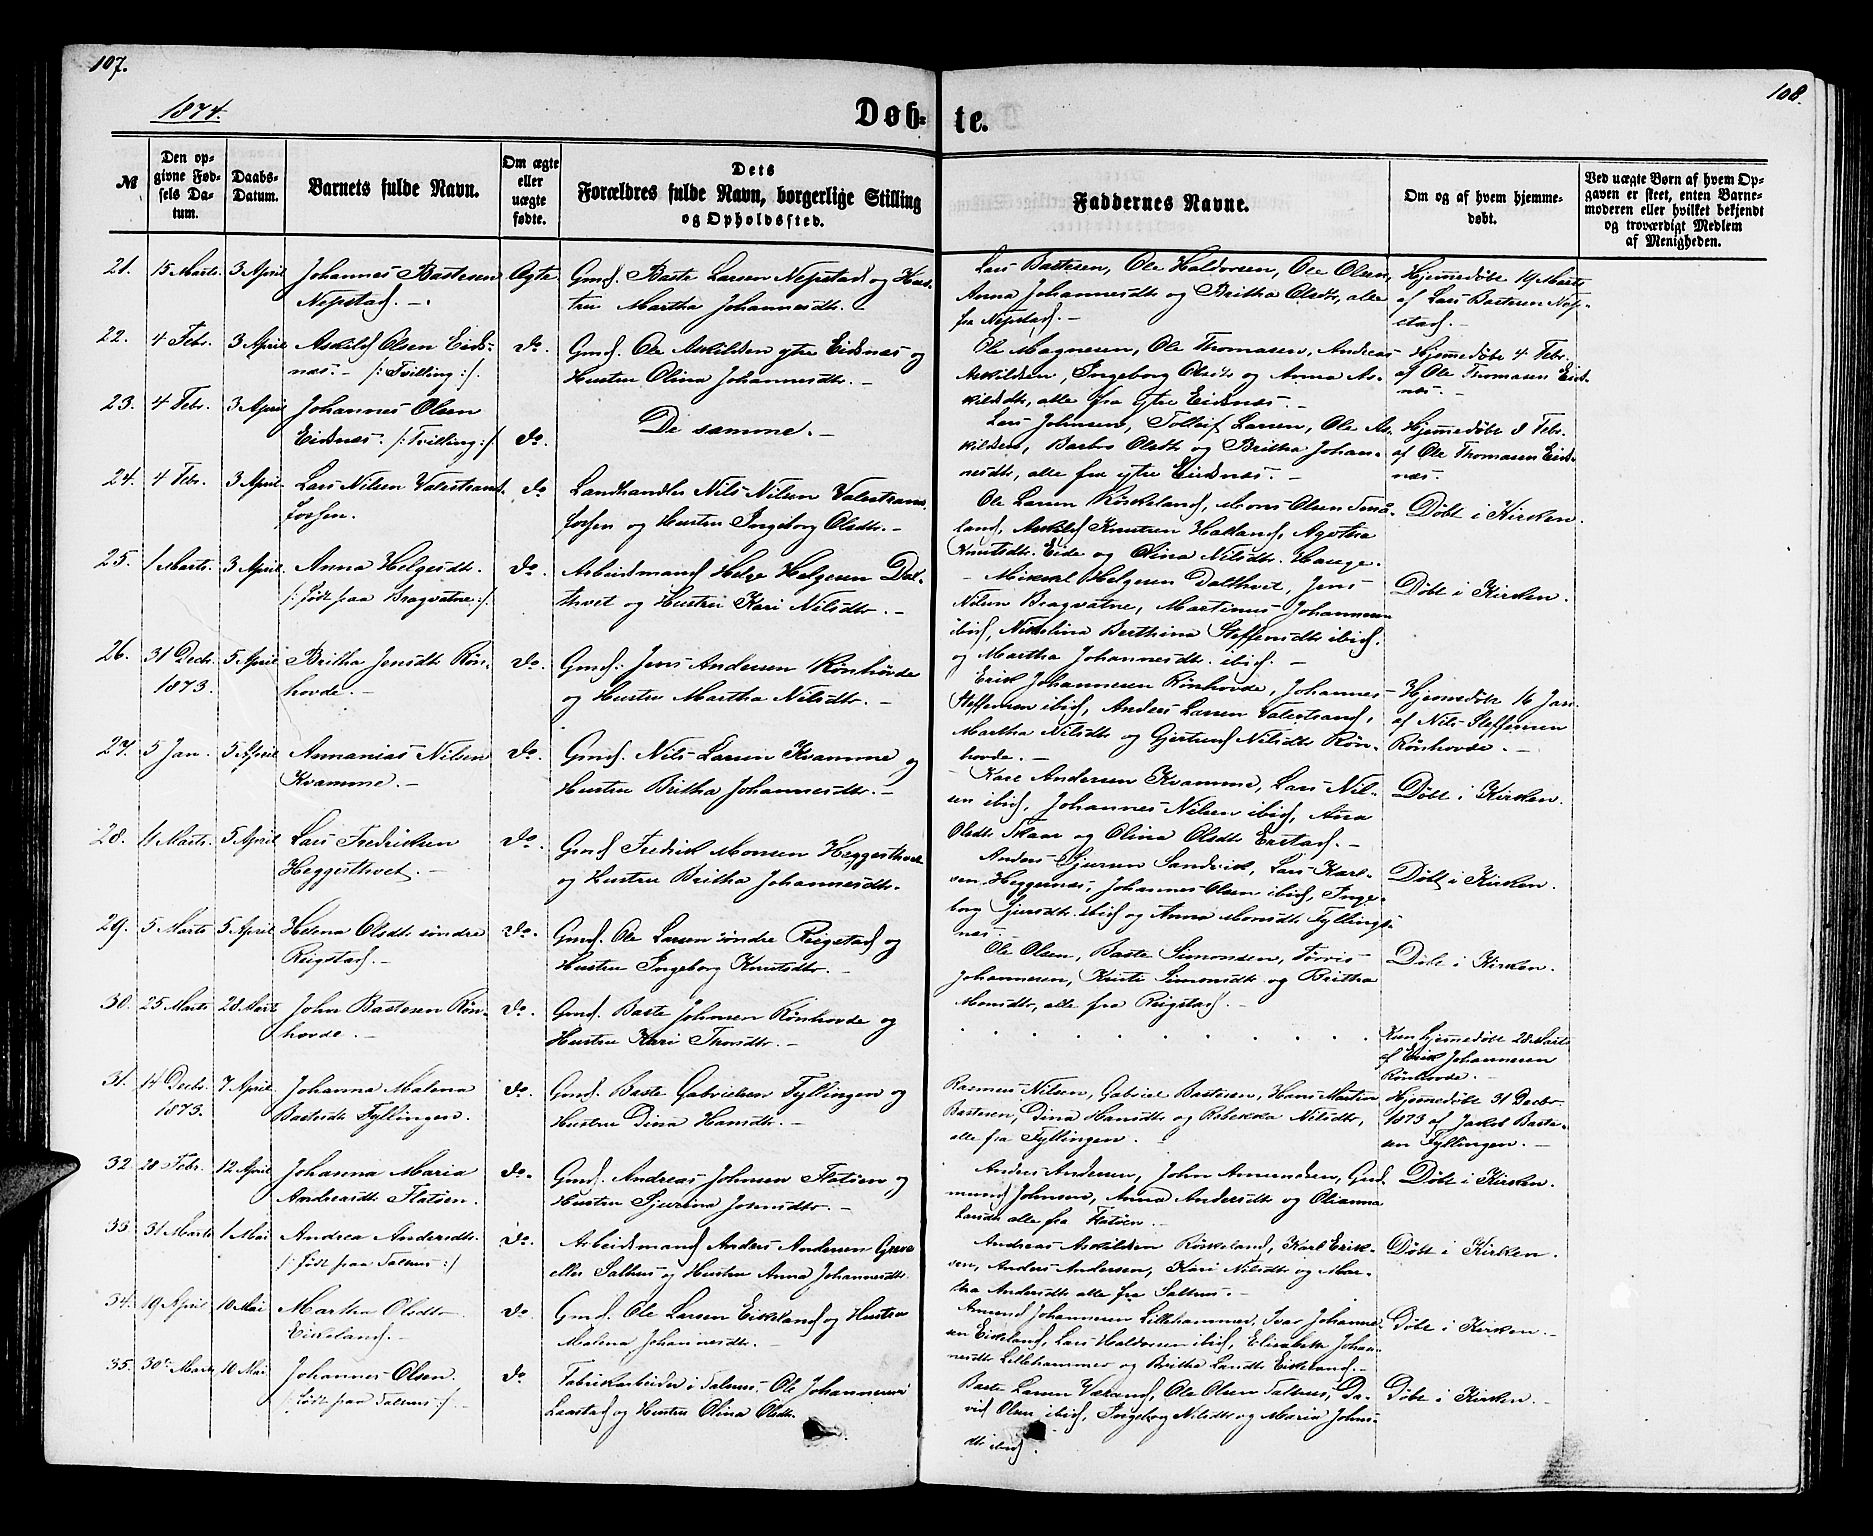 107.
108.
1874.
Døb-
te.
№
Den op-
givne Fød-
sels Da-
tum.
Daabs-
Datum.
Barnets fulde Navn.
Om ægte
eller
uægte
fødte.
Dets
Forældres fulde Navn, borgerlige Stilling
og Opholdssted.
Faddernes Navne.
Om og af hvem hjemme-
døbt.
Ved uægte Børn af hvem Op-
gaven er skeet, enten Barne-
moderen eller hvilket bekjendt
og troværdigt Medlem
af Menigheden.
21. 15 Marts 3 April Johannes Bastesen Ægte Gmd. Baste Larsen Nepstad og Hus-
Nepstad. — tru Martha Johannesdtr. —
Lars Bastesen, Ole Haldorsen, Ole Olsen,
Anna Johannesdtr og Britha Olsdtr, alle
fra Nepstad. —
Hjemmedøbt 19 Marts
af Lars Bastesen Nep-
stad. —
22. 4 Febr. 3 April Askild Olsen Eids- do. Gmd. Ole Askildsen ytre Eidsnæs og
næs. — /: Tvilling :/. Hustru Olina Johannesdtr. —
Ole Magnesen, Ole Thomasen, Andreas
Askildsen, Ingeborg Olsdtr og Anna As-
kildsdtr, alle fra ytre Eidsnæs. —
Hjemmedøbt 4 Febr.
af Ole Thomasen Eids-
næs. —
23. 4 Febr. 3 April Johannes Olsen
Eidsnæs. /: Tvilling :/. do. De samme. —
Lars Johnsen, Tolleif Larsen, Ole As-
kildsen, Barbro Olsdtr og Britha Johan-
nesdtr, alle fra ytre Eidsnæs. —
Hjemmedøbt 8 Febr.
af Ole Thomasen Eids-
næs.
24. 4 Febr. 3 April Lars Nilsen Valestrand- do Landhandler Nils Nilsen Valestrand-
fossen. fossen og Hustru Ingeborg Olsdtr. —
Ole Larsen Röskeland, Mons Olsen Små-
land, Askild Knutsen Hatland, Agatha
Knutsdtr. Eide og Olina Nilsdtr. Hauge.
Döbt i Kirken.
25. 1 Marts 3 April Anna Helgesdtr. do. Arbeidsmand Helge Helgesen Dal-
/: født paa Bragvatne :/. thvet og Hustru Kari Nilsdtr. —
Mikkel Helgesen Dalthvet, Jens
Nilsen Bragvatne, Martinus Johannesen
ibid, Nikolina Berthina Steffensdtr ibid.
og Martha Johannesdtr. ibid. —
Döbt i Kirken.
26. 31 Decbr. 5 April Britha Jensdtr Rön- do. Gmd. Jens Andersen Rönhövde
1873. hovde. — og Hustru Martha Nilsdtr. —
Erik Johannesen Rönhovde, Johannes
Steffensen ibid, Anders Larsen Valestrand,
Martha Nilsdtr og Gjertrud Nilsdtr Rön-
hovde. —
Hjemmedöbt 16 Jan.
af Nils Steffensen
Rönhovde. —
27. 5 Jan. 5 April Annanias Nilsen do. Gmd. Nils Larsen Kvamme og
Kvamme. — Hustru Britha Johannesdtr. —
Karl Andersen Kvamme, Lars Nil-
sen ibid, Johannes Nilsen ibid, Ana
Olsdtr Skaar og Olina Olsdtr Erstad. —
Döbt i Kirken.
28. 11 Marts 5 April Lars Fredriksen do. Gmd Fredrik Monsen Heggesthvet
Heggesthvet. — og Hustru Britha Johannesdtr.
Anders Sjursen Sandvik, Lars Karl-
sen Heggernæs, Johannes Olsen ibid, Inge-
borg Sjursdtr. ibid og Anna Monsdtr. Fyllings-
næs. —
Döbt i Kirken.
29. 5 Marts 5 April Helena Olsdtr. söndre do. Gmd. Ole Larsen söndre Reigstad og
Reigstad. — Hustru Ingeborg Knutsdtr. —
Ole Olsen, Baste Simonsen, Torris
Johannesen, Kristi Simonsdtr og Britha
Monsdtr, alle fra Reigstad. —
Döbt i Kirken.
30. 25 Marts 28 Marts John Bastesen Rön- do. Gmd. Baste Johnsen Rönhovde og
hovde. — Hustru Kari Thorsdtr. —
Kun hjemmedöbt 28 Marts
af Erik Johannesen
Rönhovde. —
31. 14 Decbr. 7 April Johanna Malena do. Gmd. Baste Gabrielsen Fyllingen og
1873. Bastesdtr Fyllingen. Hustru Dina Hansdtr. —
Rasmus Nilsen, Gabriel Bastesen, Hans Martin
Bastesen, Dina Hansdtr og Rebekka Nilsdtr,
alle fra Fyllingen.
Hjemmedöbt 31 Decbr.
1873 af Jakob Baste-
sen Fyllingen. —
32. 28 Febr. 12 April Johanna Maria do. Gmd. Andreas Johnsen Flatöen og
Andreasdtr Flatöen. Hustru Sjurina Johnsdtr. —
Anders Andersen, John Amundsen, Gud-
mund Johnsen, Anna Andersdtr og Olianna
Larsdtr alle fra Flatöen. —
Döbt i Kirken.
33 31 Marts 1 Mai Andrea Andersdtr. do. Arbeidsmand Anders Andersen Greve
/: født paa Salhus :/ eller Salhus og Hustru Anna Johannesdtr.
Andreas Askildsen Röskeland, Karl Erik-
sen, Anders Andersen, Kari Nilsdtr og Mar-
tha Andersdtr alle fra Salhus. —
Döbt i Kirken.
34. 19 April 10 Mai Martha Olsdtr do Gmd. Ole Larsen Eikeland og Hustru
Eikeland. — Malena Johannesdtr. —
Amund Johannesen Lillehammer, Ivar Johanne-
sen Eikeland, Lars Haldorsen ibid, Elisabeth Johan-
nesdtr Lillehammer og Britha Larsdtr Eikeland. —
Döbt i Kirken. —
35. 30te Marts 10 Mai Johannes Olsen. do Fabrikarbeider i Salhus, Ole Johannesen
/: født paa Salhus :/ — Laastad og Hustru Olina Olsdtr.
Baste Larsen Væraas, Ole Olsen Salhus, Da-
vid Olsen ibid, Ingeborg Nilsdtr og Maria Johns-
dtr ibid.
Döbt i Kirken. —